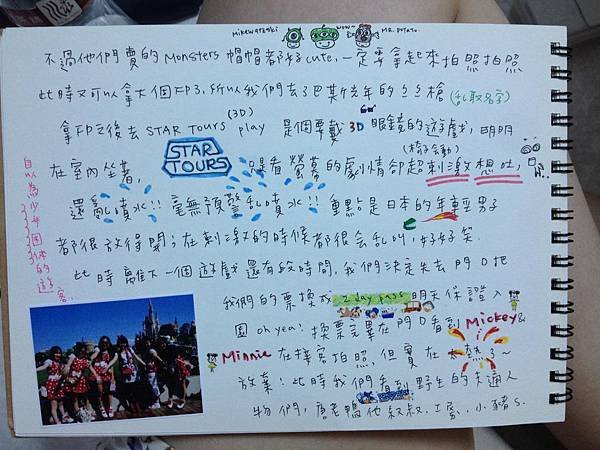 Mikewazaski
WOW~
MR. POTATO.
不過他們賣的 Monsters 帽帽都好 cute, 一定要拿起來拍照拍照
此時又可以拿下個FP3, 所以我們去了巴其佬年的ㄉㄉ槍 (亂取名字)
(3D)
拿FP之後去 STAR TOURS play 是個要戴 3D 眼鏡的遊戲, 明明
(椅子會動)
在室內坐著, STAR TOURS 只看螢幕的劇情卻超刺激想吐,
還亂噴水!! 毫無預警亂噴水!! 重點是日本的年輕男子
都很放得開; 在刺激的時候都很會乱叫, 好好笑.
此時離下一個遊戲還有段時間, 我們決定先去門口把
我們的票換成 2 day pass 明天保證入
園 oh yea! 換票完畢在門口看到 Mickey &
Minnie 在接客拍照, 但實在太熱了~
放棄! 此時我們看到野生的卡通人
物們, 唐老鴨他叔叔.
小豬s.
自以為少女團體的遊客